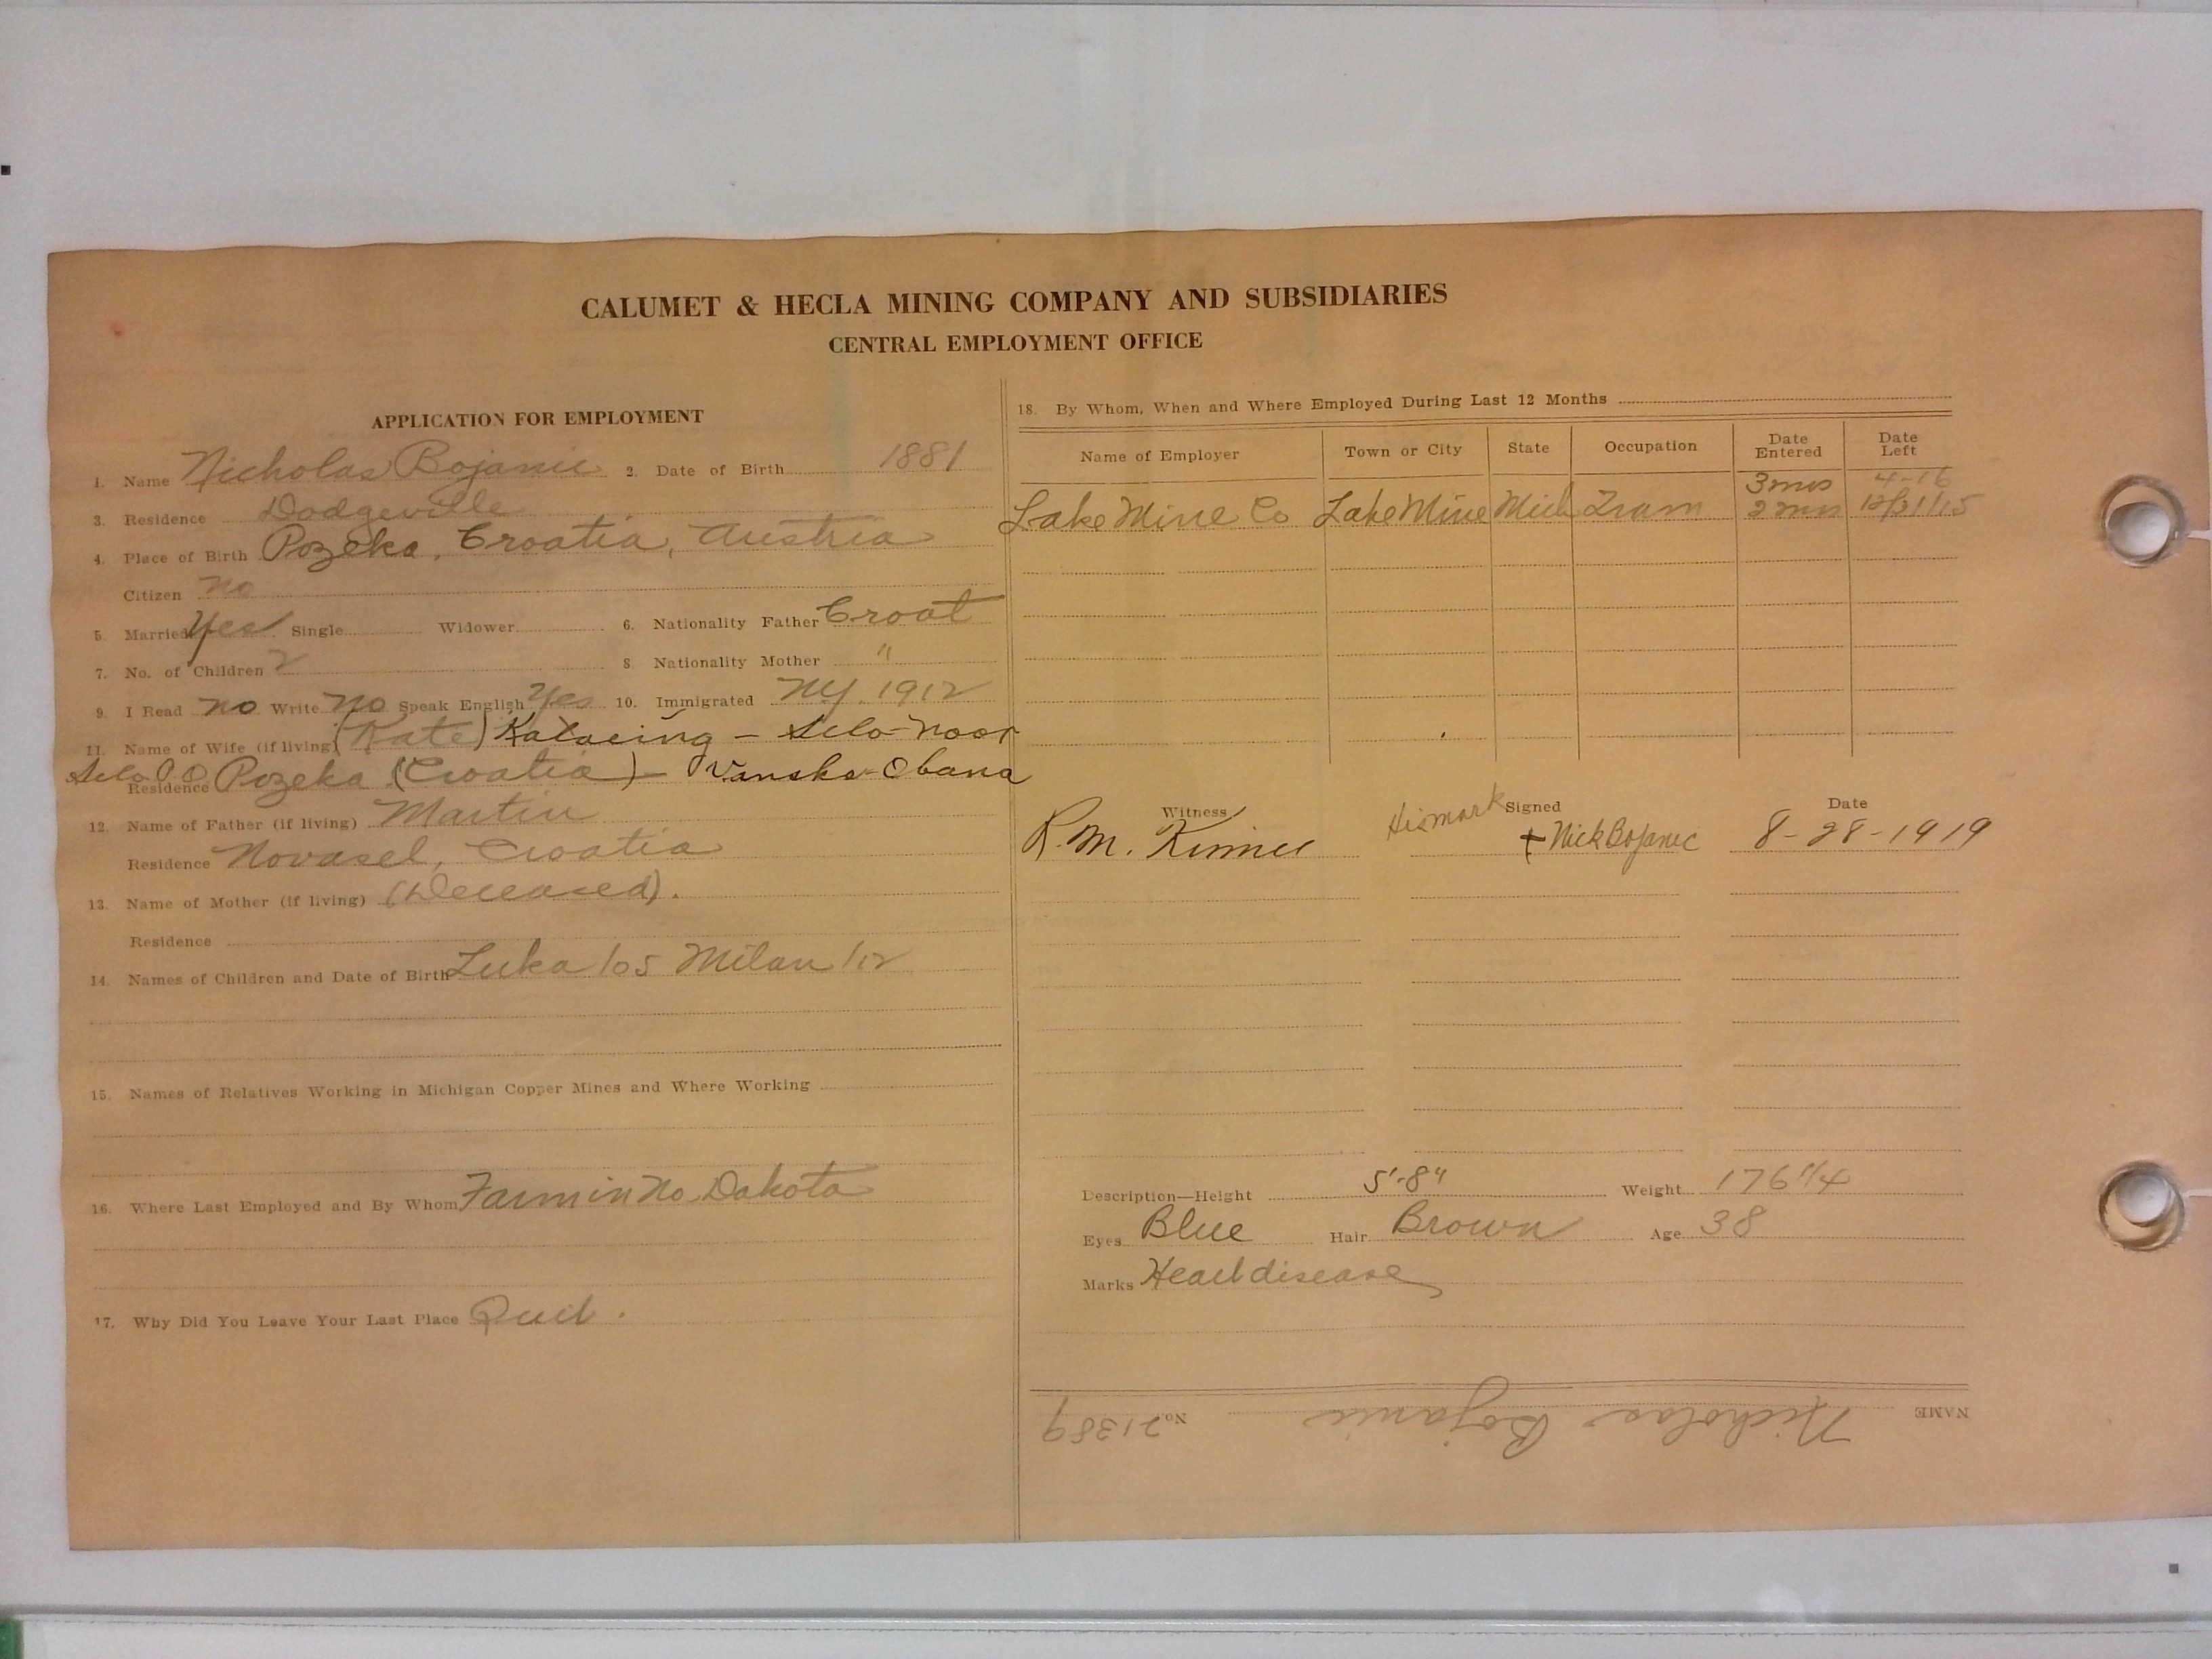 CALUMET & HECLA MINING COMPANY AND SUBSIDIARIES
CENTRAL EMPLOYMENT OFFICE
APPLICATION FOR EMPLOYMENT
1. Name Nicholas Bojanic 2. Date of Birth 1881
3. Residence Dodgeville
4. Place of Birth Pozeka, Croatia, Austria
Citizen no
5. Married Yes Single Widower 6. Nationality Father Croat
7. No. of Children 2 8. Nationality Mother "
9. I Read no Write no Speak English Yes 10. Immigrated NY. 1912
11. Name of Wife (if living) (Kate) - Selo-
Selo P.O. Residence Pozeka (Croatia) - Obana
12. Name of Father (if living) Martin
Residence Novasel, Croatia
13. Name of Mother (if living) (Deceased).
Residence
14. Names of Children and Date of Birth Luka /05 Milan /12
15. Names of Relatives Working in Michigan Copper Mines and Where Working
16. Where Last Employed and By Whom Farm in No. Dakota
17. Why Did You Leave Your Last Place Quit.
18. By Whom, When and Where Employed During Last 12 Months
Name of Employer Town or City State Occupation Date Entered Date Left
3 mos 4-16
Lake Mine Co Lake Mine Mich Tram 2 mos 12/31/15
Witness Signed Date
R. M. His mark + Nick Bojanic 8-28-1919
Description—Height 5'-8" Weight 176
Eyes Blue Hair Brown Age 38
Marks Heart disease
NAME Nicholas Bojanic No. 21389